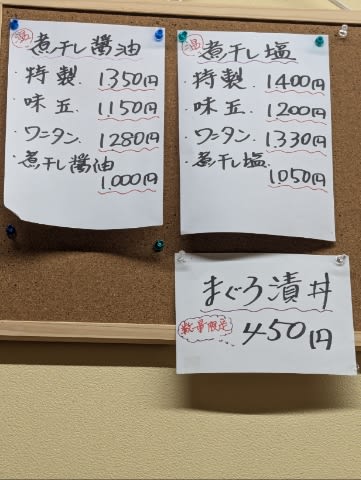 温 煮干し醤油
・特製. 1350円
・味玉. 1150円
・ワンタン. 1280円
・煮干し醤油
1000円
温 煮干し塩
・特製. 1400円
・味玉. 1200円
・ワンタン. 1330円
・煮干し塩.
1050円
まぐろ漬丼
数量限定 450円